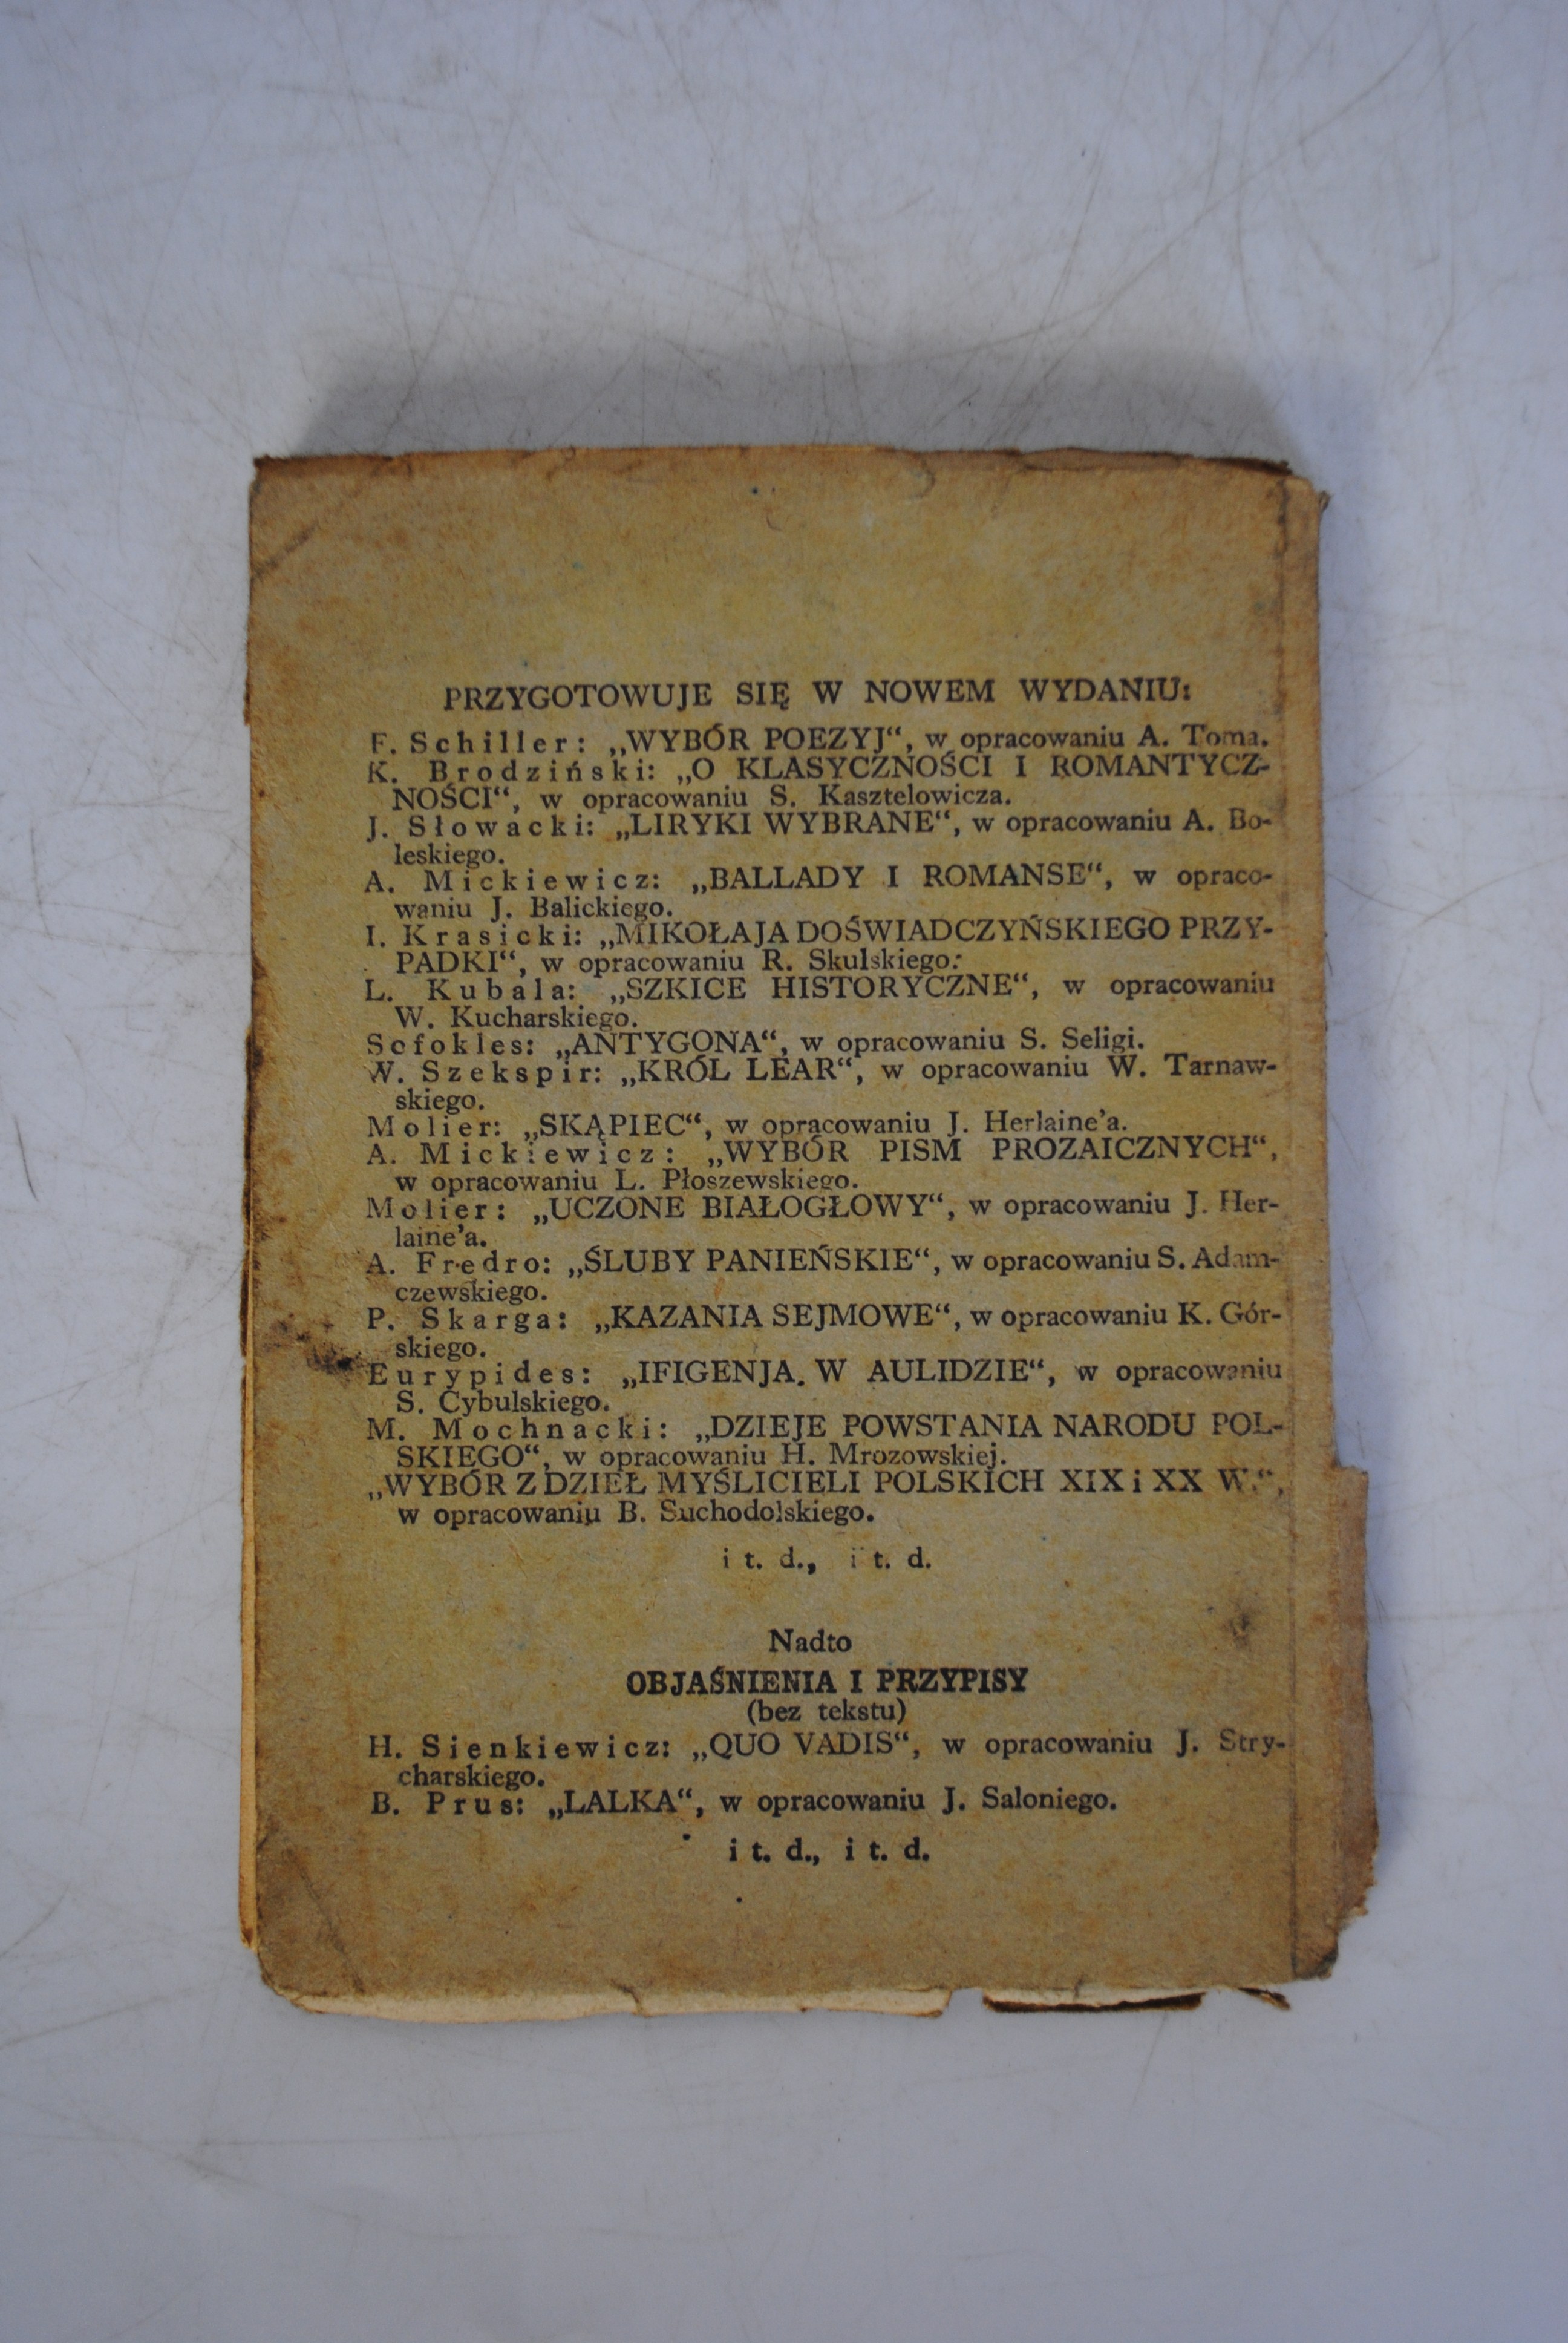 PRZYGOTOWUJE SIĘ W NOWEM WYDANIU:
F. Schiller: „WYBÓR POEZYJ“, w opracowaniu A. Toma.
K. Brodziński: „O KLASYCZNOŚCI I ROMANTYCZ-
NOŚCI“, w opracowaniu S. Kasztelowicza.
J. Słowacki: „LIRYKI WYBRANE“, w opracowaniu A. Bo-
leskiego.
A. Mickiewicz: „BALLADY I ROMANSE“, w opraco-
waniu J. Balickiego.
I. Krasicki: „MIKOŁAJA DOŚWIADCZYŃSKIEGO PRZY-
PADKI“, w opracowaniu R. Skulskiego.
L. Kubala: „SZKICE HISTORYCZNE“, w opracowaniu
W. Kucharskiego.
Sofokles: „ANTYGONA“, w opracowaniu S. Seligi.
W. Szekspir: „KRÓL LEAR“, w opracowaniu W. Tarnaw-
skiego.
Molier: „SKĄPIEC“, w opracowaniu J. Herlaine’a.
A. Mickiewicz: „WYBÓR PISM PROZAICZNYCH“,
w opracowaniu L. Płoszewskiego.
Molier: „UCZONE BIAŁOGŁOWY“, w opracowaniu J. Her-
laine’a.
A. Fredro: „ŚLUBY PANIEŃSKIE“, w opracowaniu S. Adam-
czewskiego.
P. Skarga: „KAZANIA SEJMOWE“, w opracowaniu K. Gór-
skiego.
Eurypides: „IFIGENJA. W AULIDZIE“, w opracowaniu
S. Cybulskiego.
M. Mochnacki: „DZIEJE POWSTANIA NARODU POL-
SKIEGO“, w opracowaniu H. Mrozowskiej.
„WYBÓR Z DZIEŁ MYŚLICIELI POLSKICH XIX i XX W.“,
w opracowaniu B. Suchodolskiego.
i t. d., i t. d.
Nadto
OBJAŚNIENIA I PRZYPISY
(bez tekstu)
H. Sienkiewicz: „QUO VADIS“, w opracowaniu J. Stry-
charskiego.
B. Prus: „LALKA“, w opracowaniu J. Saloniego.
i t. d., i t. d.